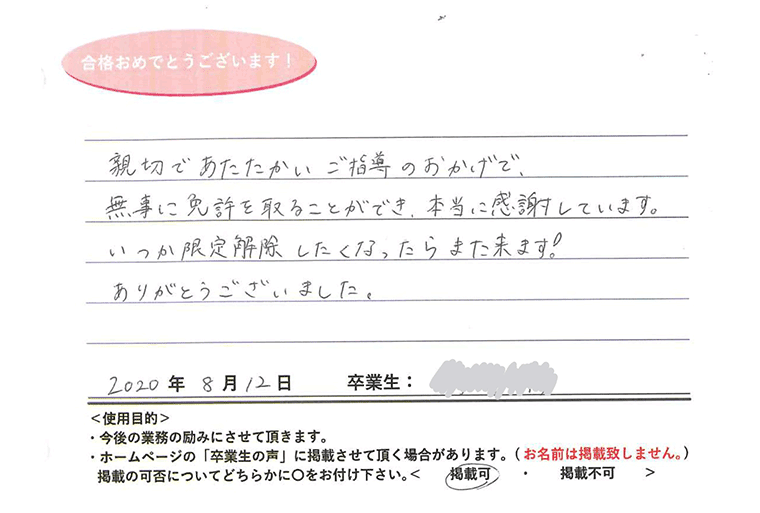 合格おめでとうございます！
親切であたたかいご指導のおかげで、
無事に免許を取ることができ、本当に感謝しています。
いつか限定解除したくなったらまた来ます！
ありがとうございました。
2020年8月12日 卒業生：
＜使用目的＞
・今後の業務の励みにさせて頂きます。
・ホームページの「卒業生の声」に掲載させて頂く場合があります。（お名前は掲載致しません。）
掲載の可否についてどちらかに〇をお付け下さい。＜ 掲載可 ・ 掲載不可 ＞